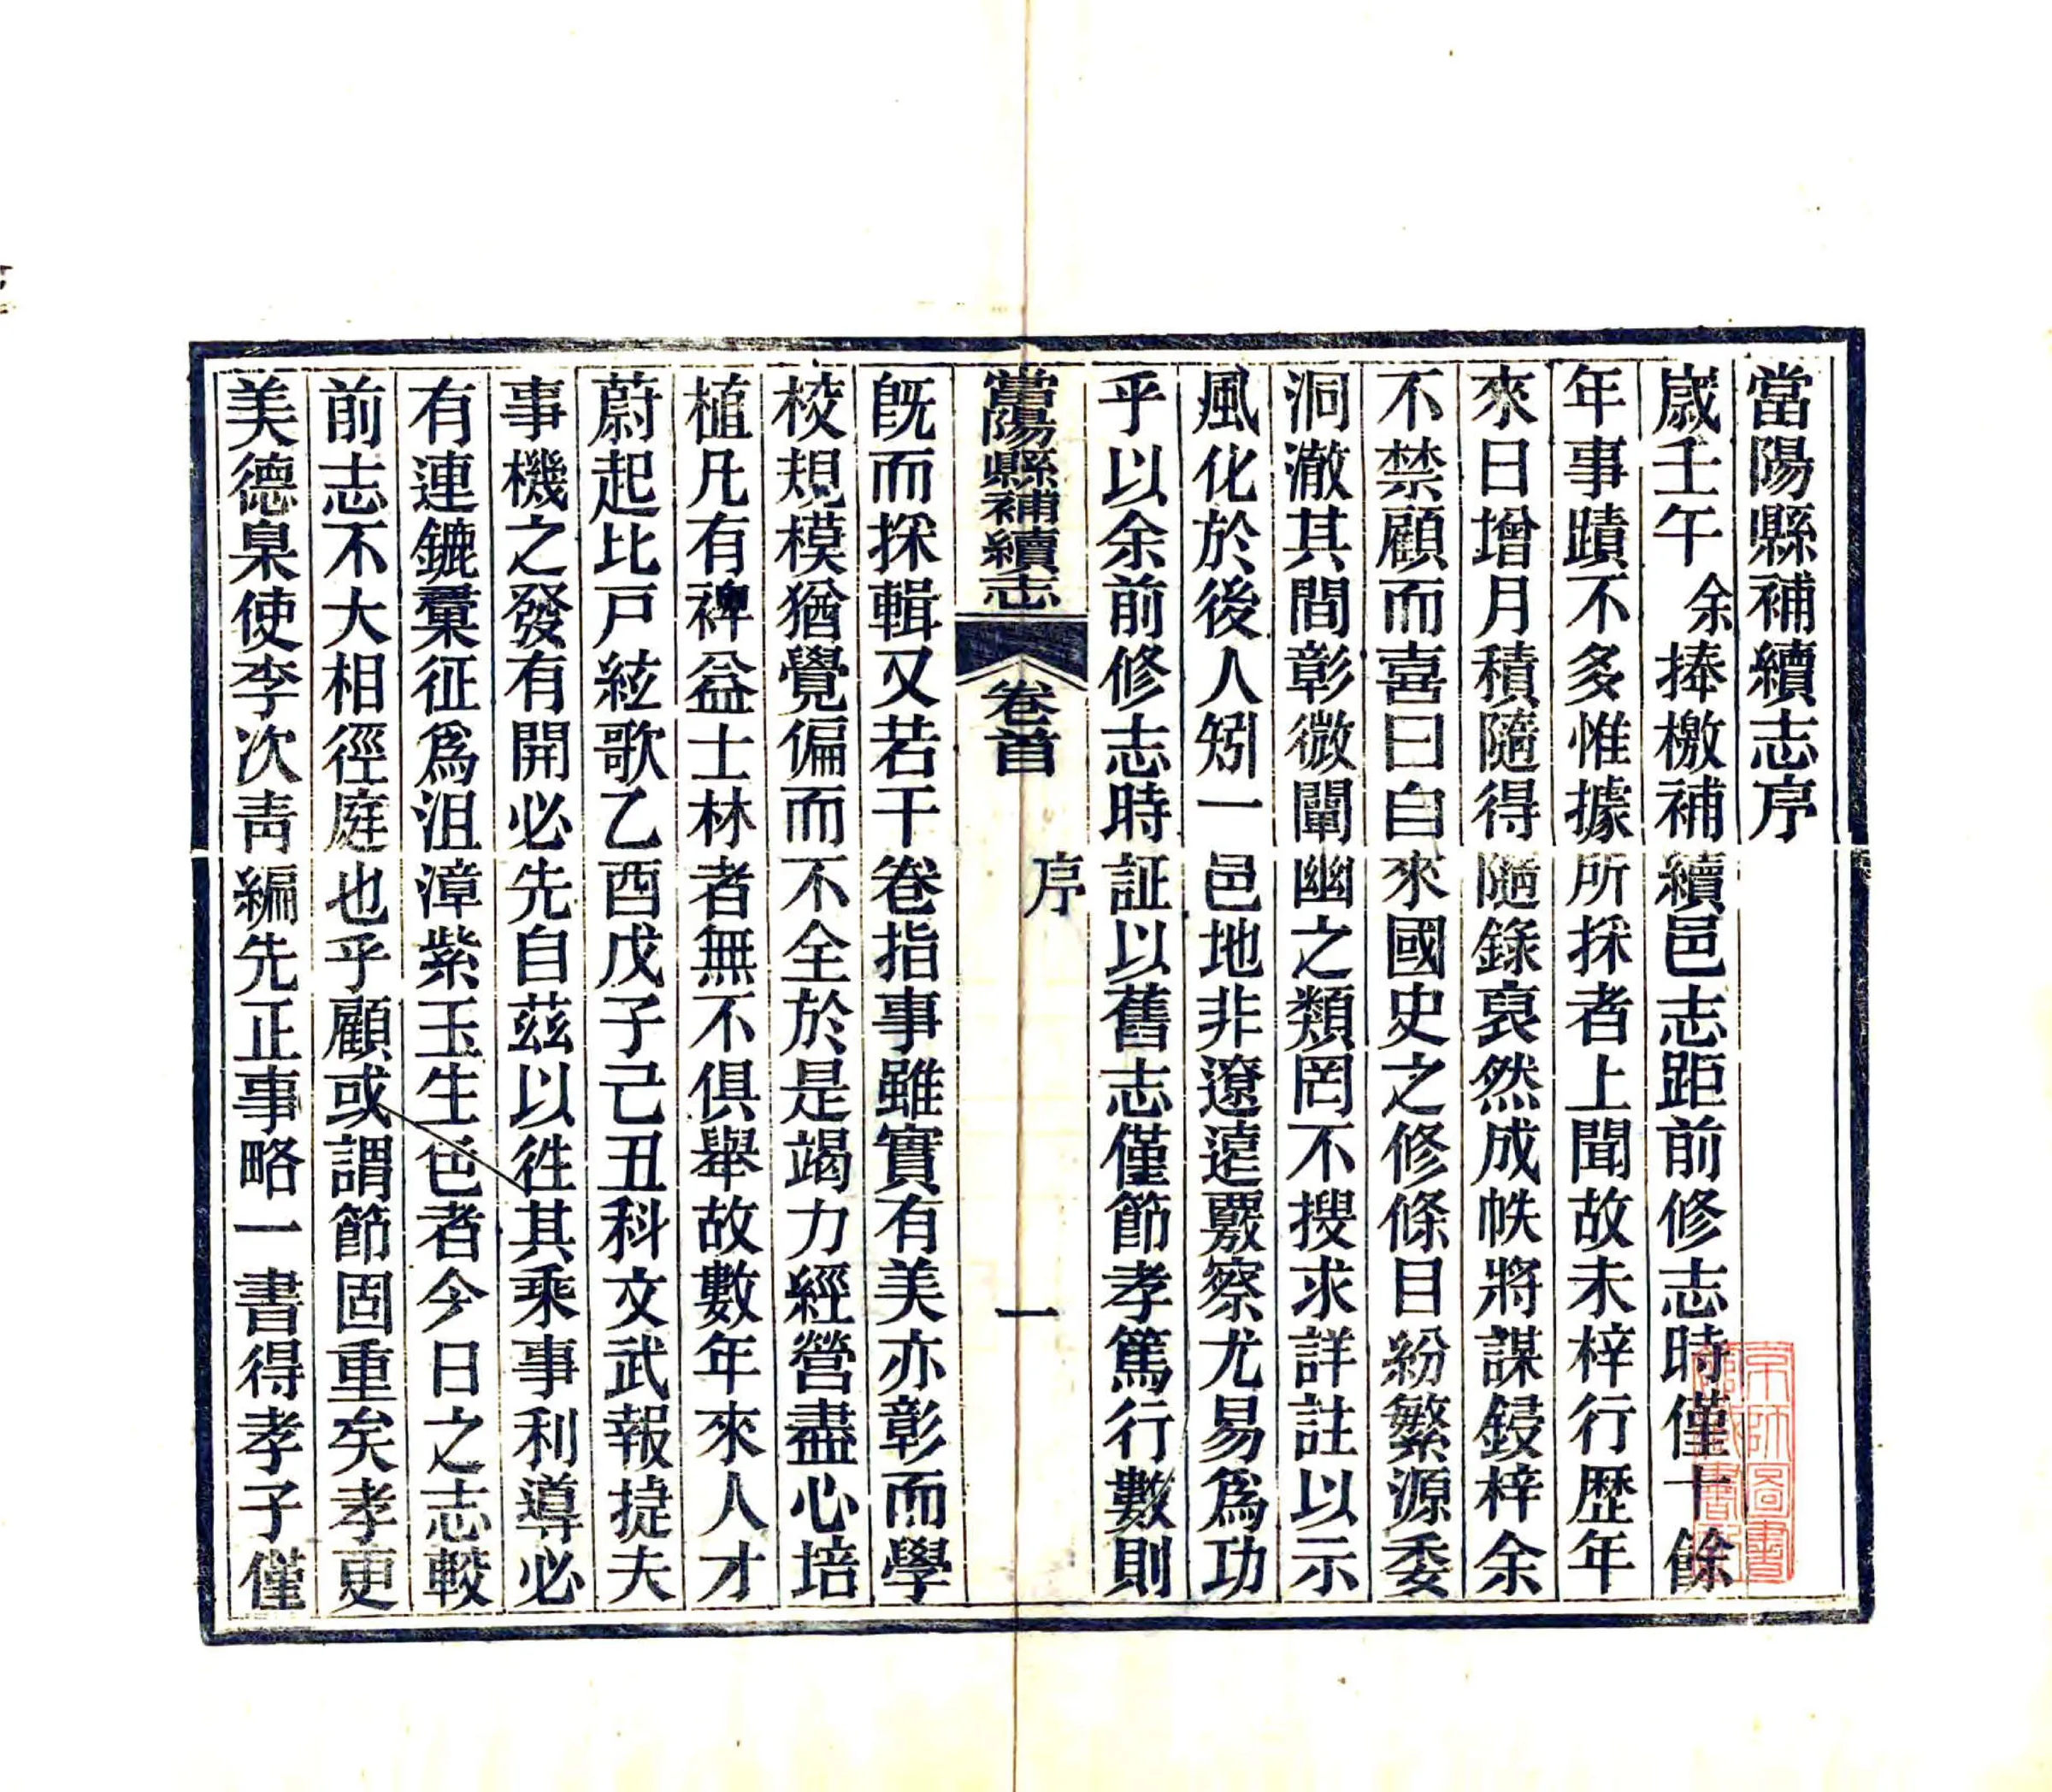 當陽縣補續志序
歲壬午余捧檄補續邑志距前修志時僅十餘
年事蹟不多惟據所採者上聞故未梓行歷年
來日增月積隨得隨錄裒然成帙將謀鋟梓余
不禁顧而喜曰自來國史之修條目紛繁源委
洞澈其間彰微闡幽之類罔不搜求詳註以示
風化於後人矧一邑地非遼遠覈察尤易爲功
乎以余前修志時証以舊志僅節孝篤行數則
當陽縣補續志 卷首 序 一
旣而採輯又若干卷指事雖實有美亦彰而學
校規模猶覺偏而不全於是竭力經營盡心培
植凡有裨益士林者無不俱舉故數年來人才
蔚起比戸絃歌乙酉戊子己丑科文武報捷夫
事機之發有開必先自茲以徃其乘事利導必
有連鑣彙征爲沮漳紫玉生色者今日之志較
前志不大相徑庭也乎顧或謂節固重矣孝更
美德臬使李次靑編先正事略一書得孝子僅
京師圖書館藏書記